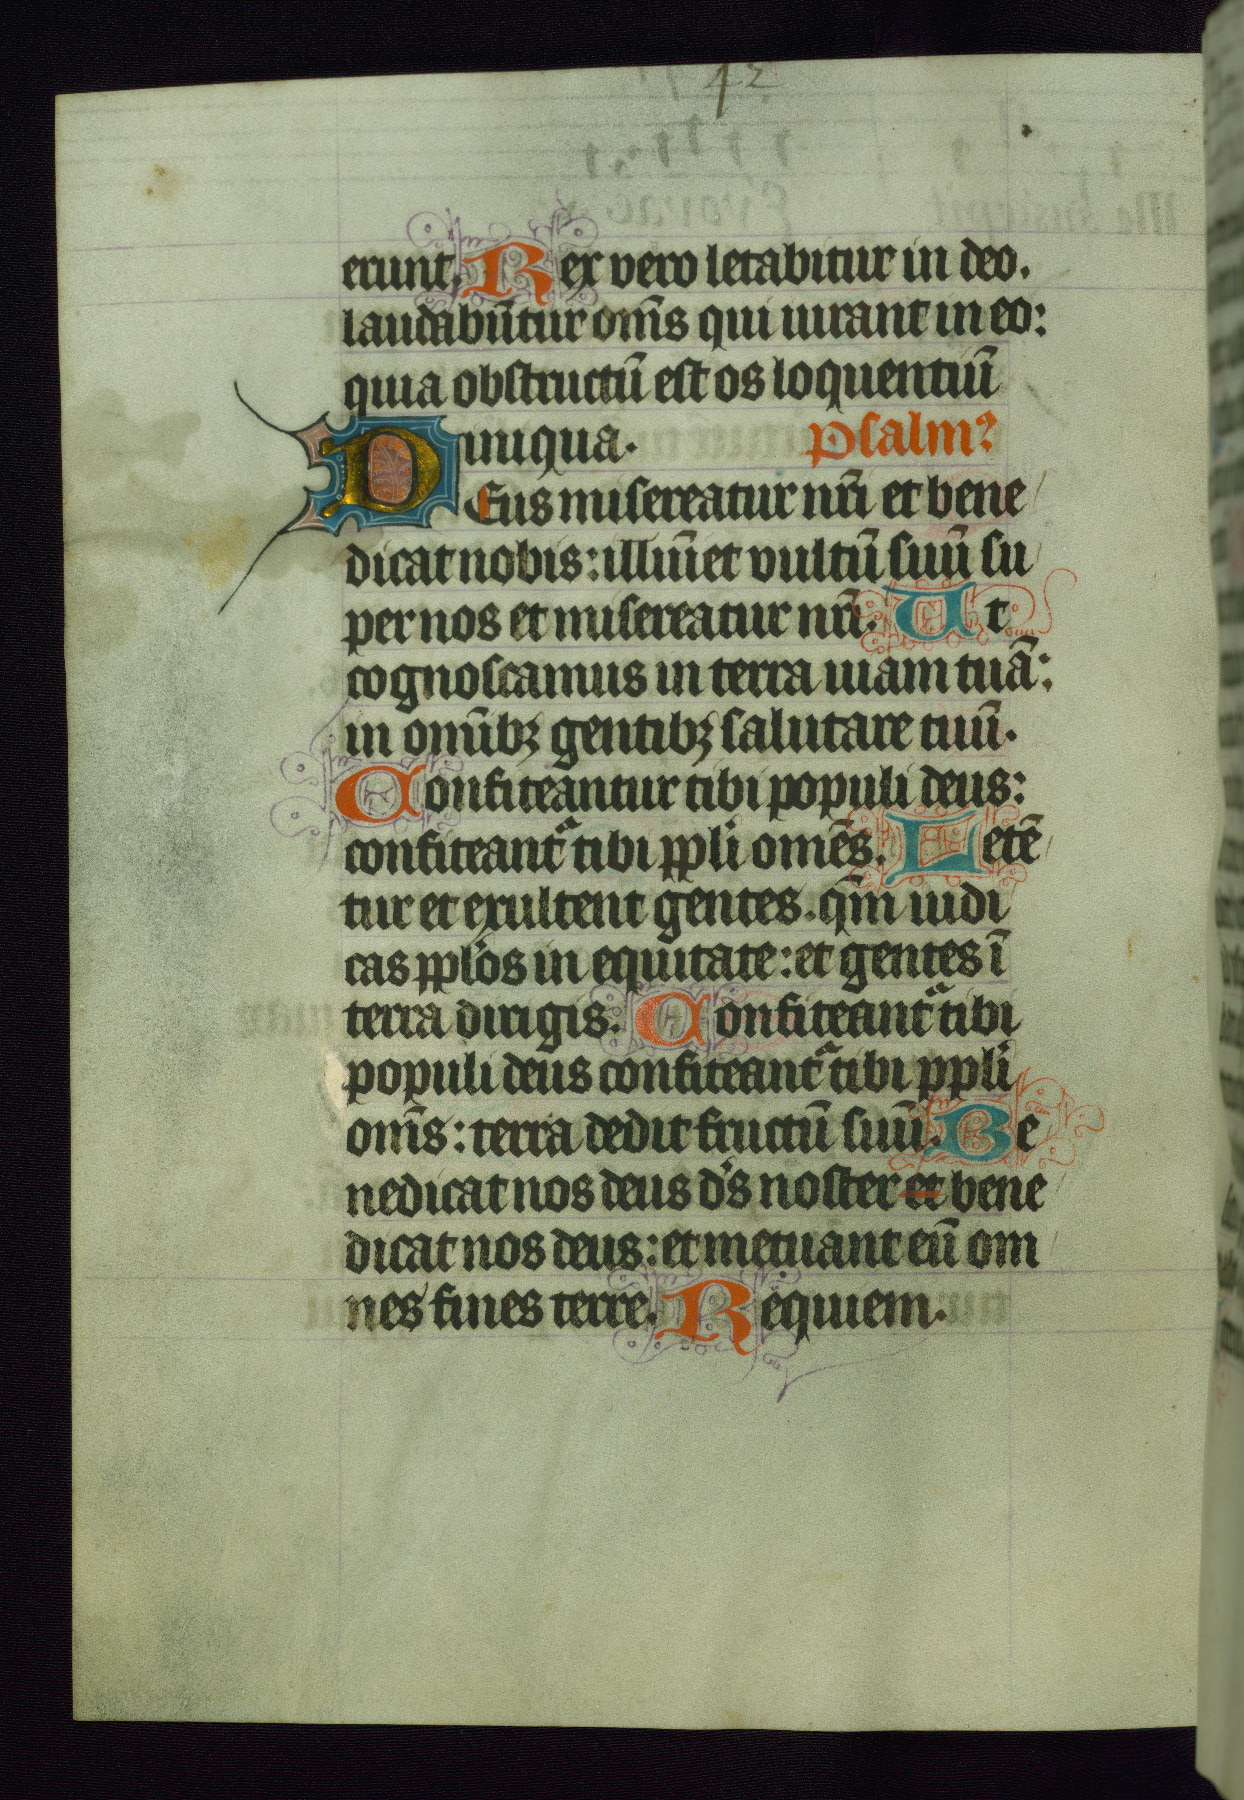 42
erunt. Rex vero letabitur in deo.
laudabūtur om̄s qui iurant in eo:
quia obstructū est os loquentiū
iniqua. Psalmꝰ
Deus misereatur nr̄i et bene
dicat nobis: illūiet vultū suū su
per nos et misereatur nr̄i. Ut
cognoscamus in terra uiam tuā:
in om̄ibꝫ gentibꝫ salutare tuū.
Confiteantur tibi populi deus:
confiteantᷓ tibi ppl̓i omēs. Letē
tur et exultent gentes. qm̄ iudi
cas ppl̓os in equitate: et gentes ī
terra dirigis. Confiteantᷓ tibi
populi deus confiteantᷓ tibi ppl̓i
om̄s: terra dedit fructū suū. Be
nedicat nos deus d̓s noster et bene
dicat nos deus: et metuant eū om
nes fines terre. Requiem.